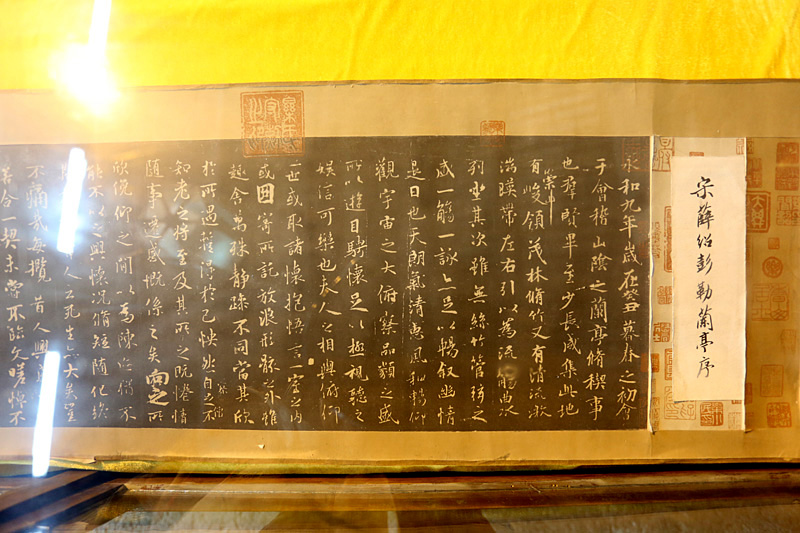 宋薛绍彭勒蘭亭序
永和九年歲在癸丑暮春之初會
于會稽山陰之蘭亭脩稧事
也羣賢畢至少長咸集此地
有崇山峻領茂林脩竹又有清流激
湍暎帶左右引以為流觴曲水
列坐其次雖無絲竹管弦之
盛一觴一詠亦足以暢叙幽情
是日也天朗氣清惠風和暢仰
觀宇宙之大俯察品類之盛
所以遊目騁懷足以極視聽之
娛信可樂也夫人之相與俯仰
一世或取諸懷抱悟言一室之內
或因寄所託放浪形骸之外雖
趣舍萬殊靜躁不同當其欣
於所遇暫得於己怏然自足不
知老之將至及其所之既惓情
隨事遷感慨係之矣向之所
欣俛仰之間以為陳迹猶不
能不以之興懷況脩短隨化終
人云死生亦大矣豈
不痛哉每攬昔人興
若合一契未嘗不臨文嗟悼不